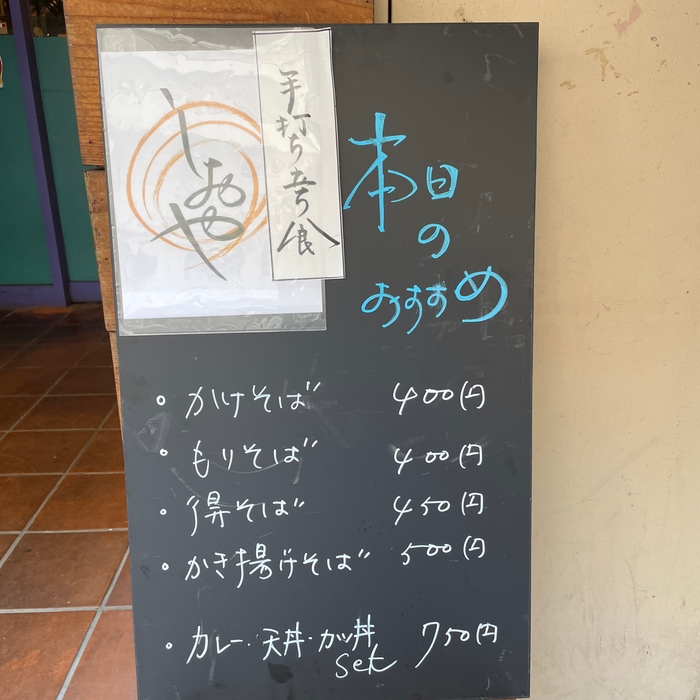 しおや
手打ち蕎食
本日
の
おすすめ
・かけそば 400円
・もりそば 400円
・得そば 450円
・かき揚げそば 500円
・カレー・天丼・カツ丼
set 750円